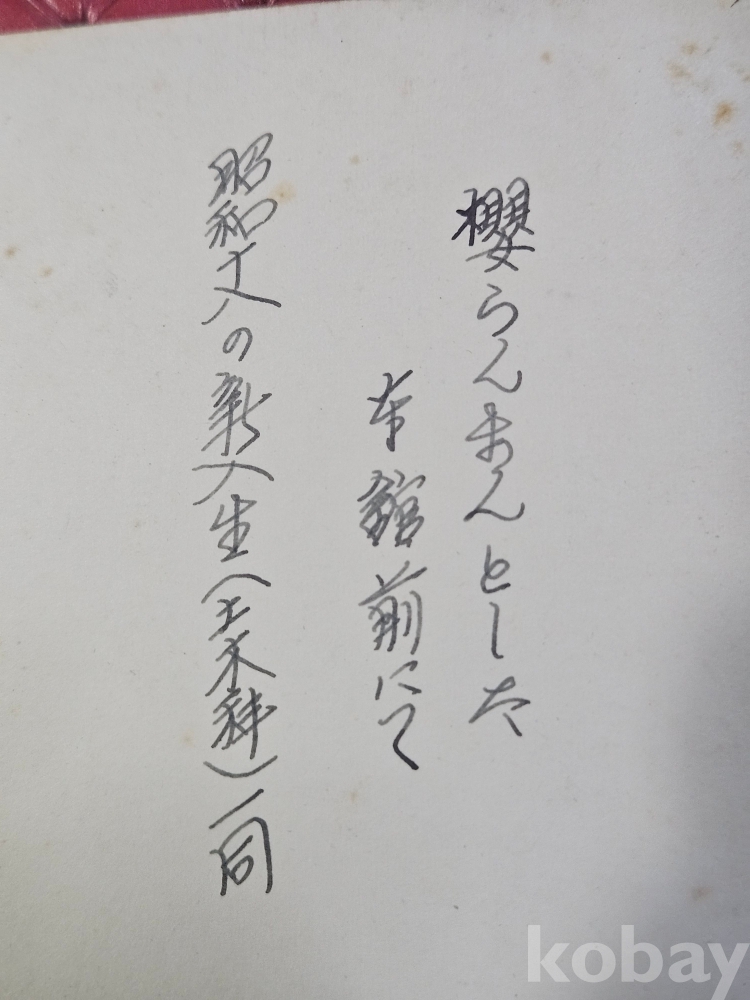 櫻らんまんとした
本館前にて
昭和十八の新入生(土木科)一同
kobay